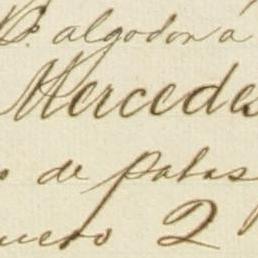 algodon a
Mercedes
o de patas
uero 2